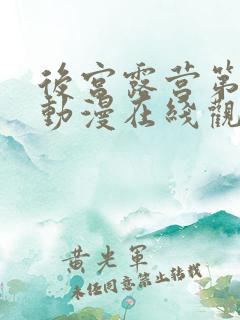 後宮露营第
動漫在綫觀
黄光軍
未经同意禁止转载